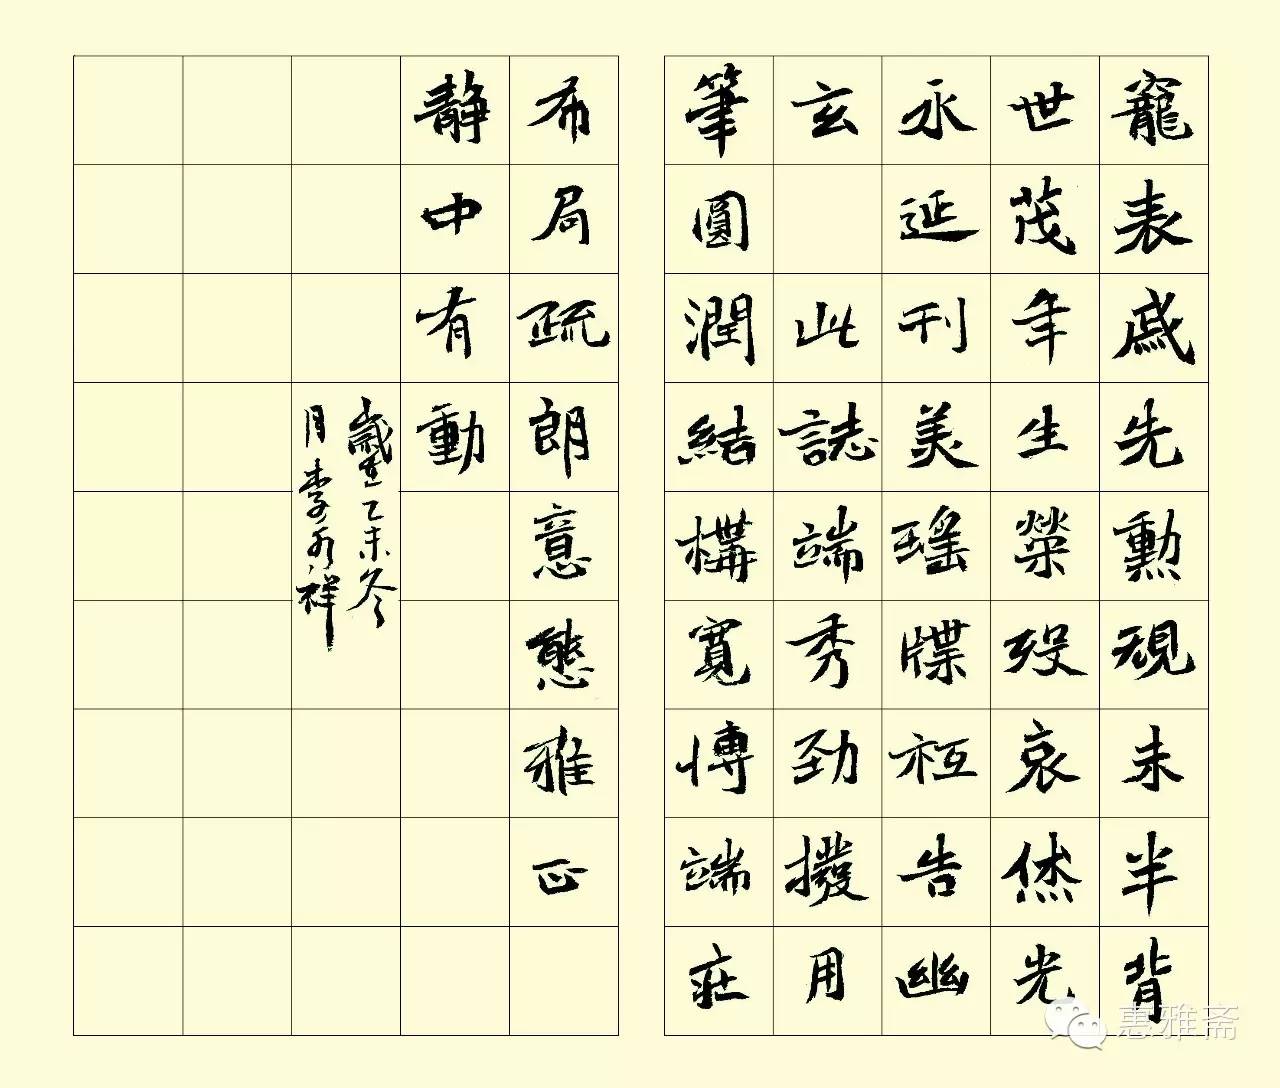 寵表戚先勲規未半背
世茂年生榮歿哀傜光
永延刊美瑤牒祗告幽
玄 此誌端秀勁撥用
筆圓潤結構寬博端莊
布局疏朗意態雅正
靜中有動
歲在乙未冬
月李永祥
惠雅斋